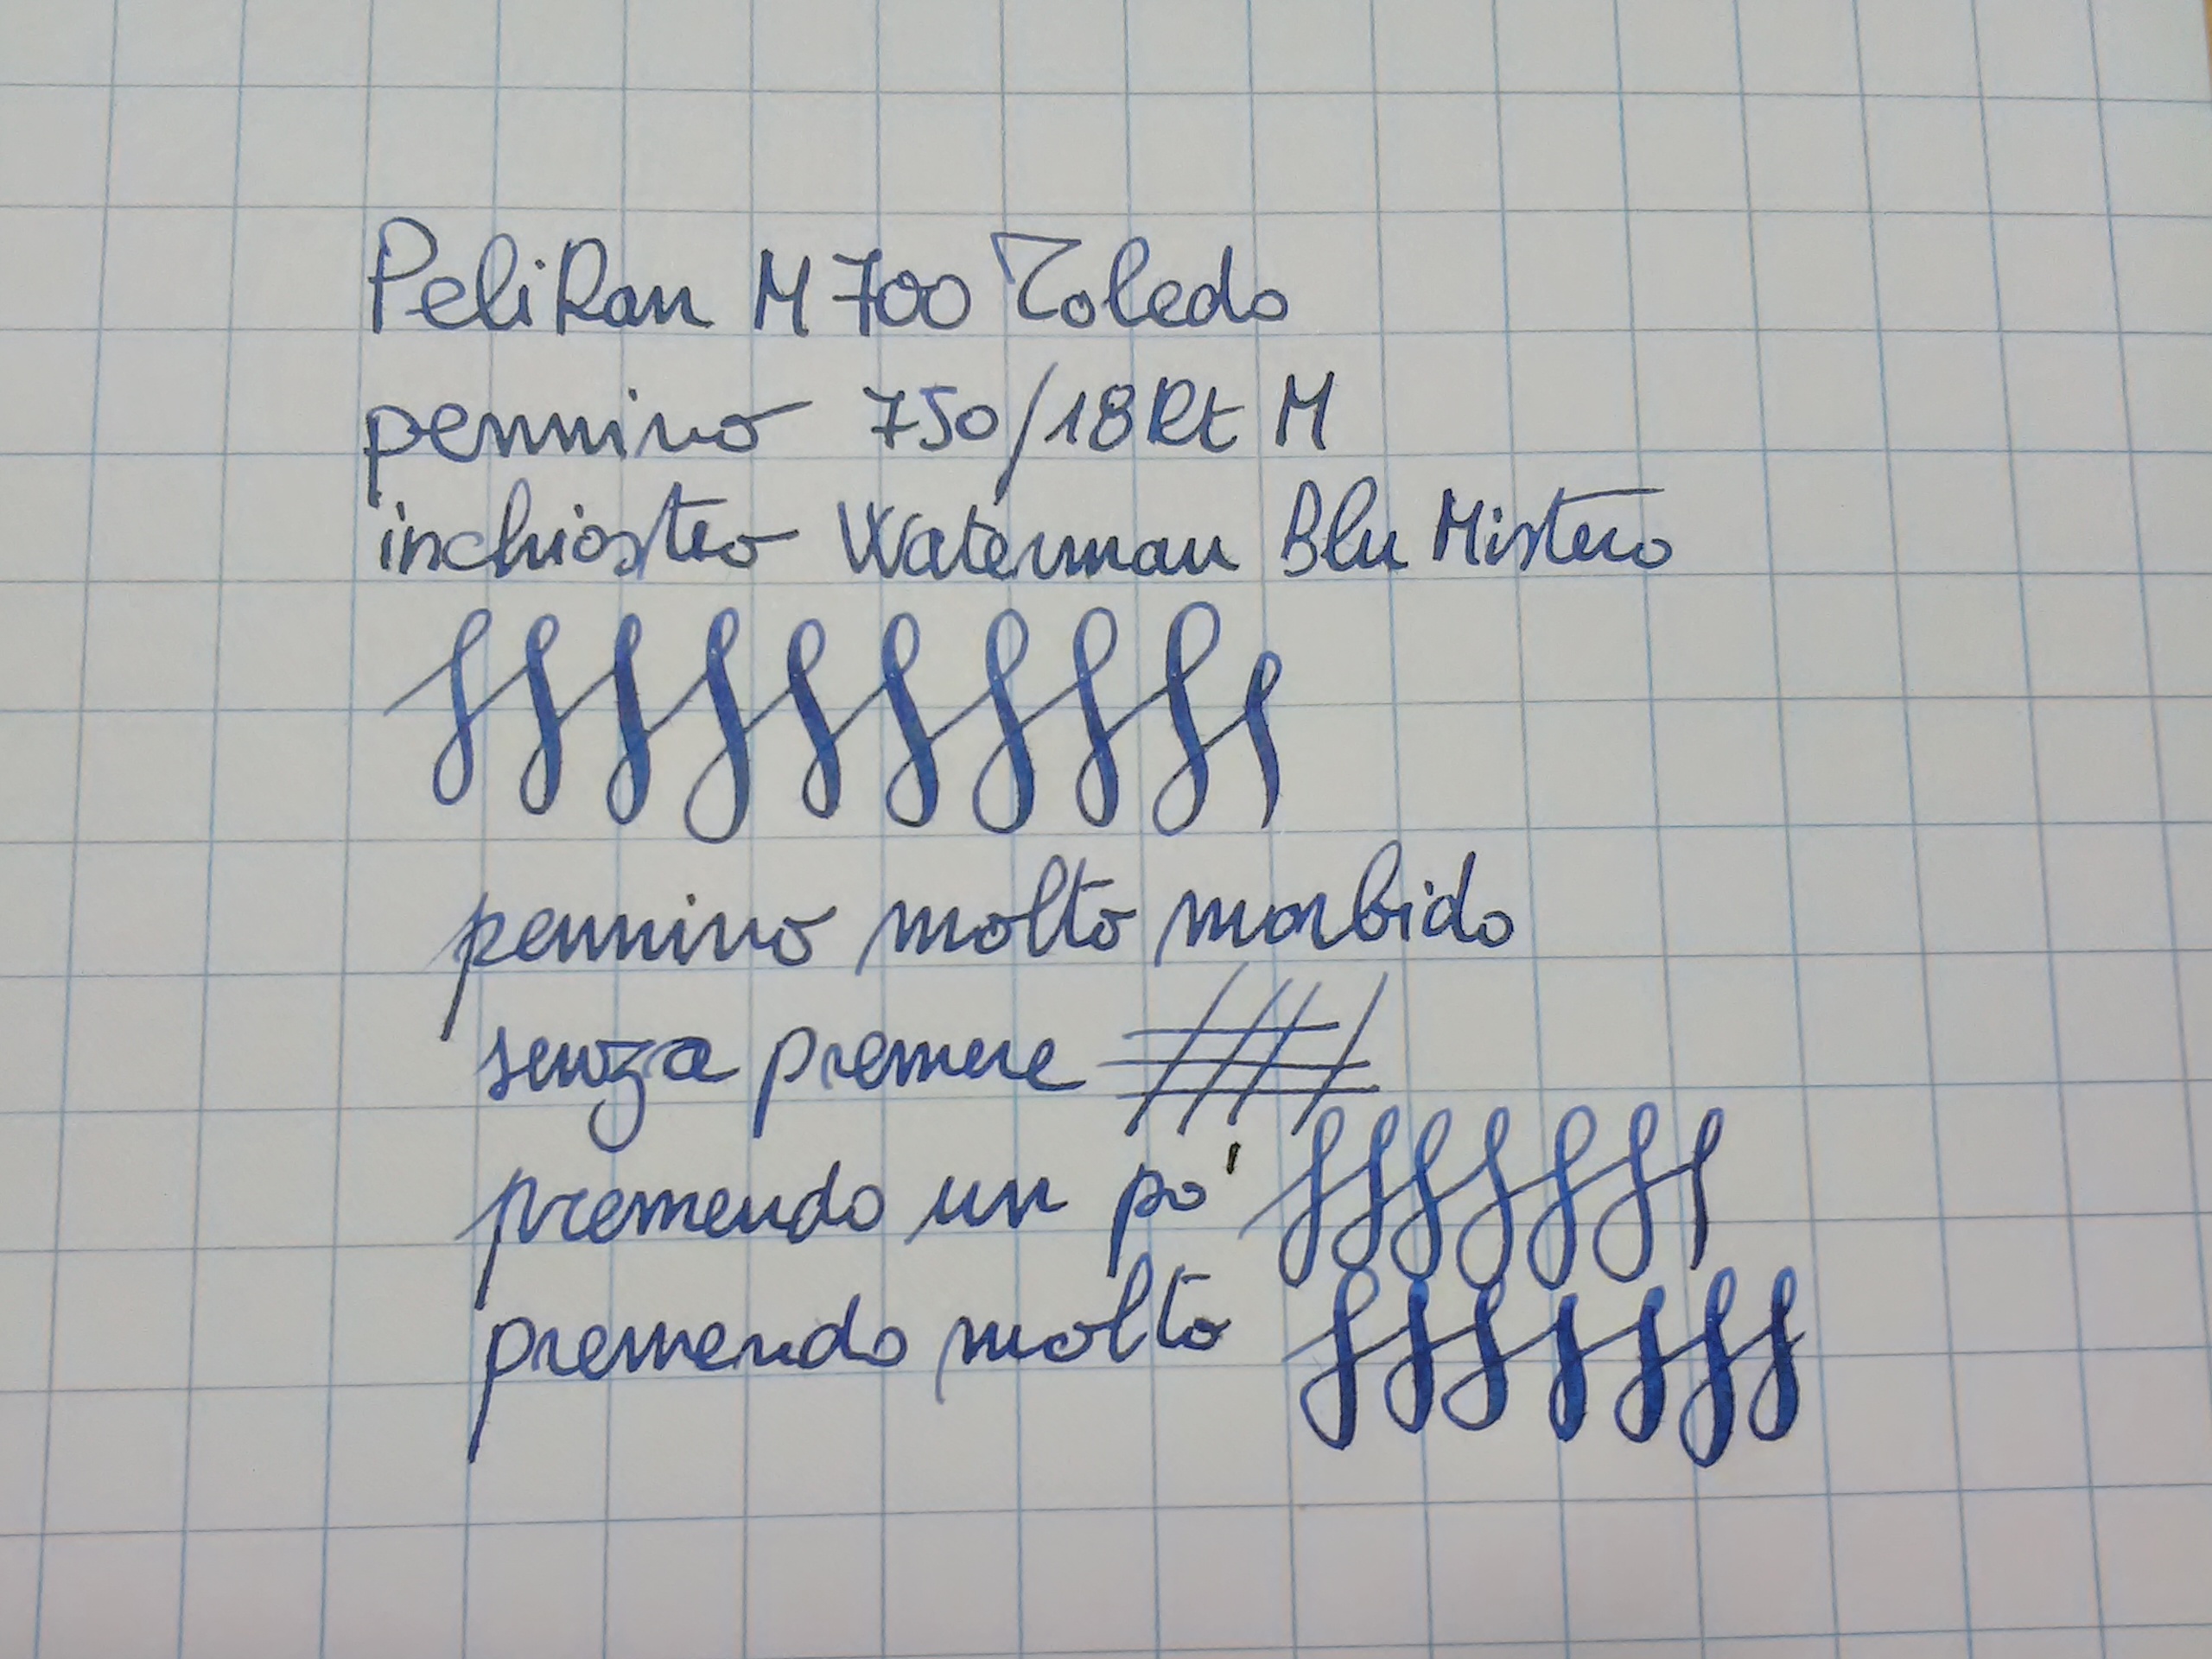 Pelikan M700 Toledo
pennino 750/18kt M
inchiostro Waterman Blu Mistero
pennino molto morbido
senza premere
premendo un po'
premendo molto